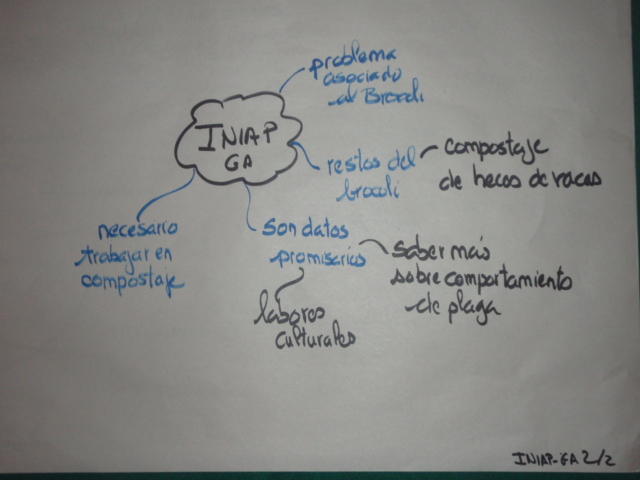 problema
asociado
al Brocoli
INIAP
GA
restos del
brocoli
compostaje
de heces de vacas
necesario
trabajar en
compostaje
son datos
promisorios
saber más
sobre comportamiento
de plaga
labores
culturales
INIAP-GA 2/2